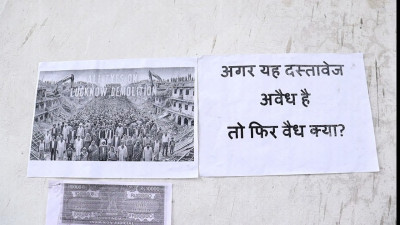 LUCKNOW DEMOLITION
अगर यह दस्तावेज
अवैध है
तो फिर वैध क्या?